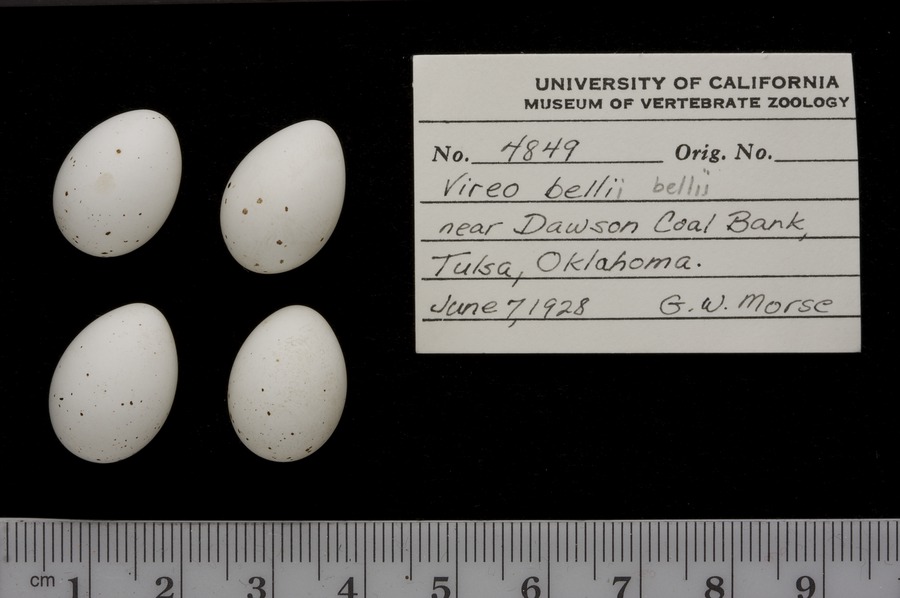 UNIVERSITY OF CALIFORNIA
MUSEUM OF VERTEBRATE ZOOLOGY
No. 4849 Orig. No.
Vireo bellii bellii
near Dawson Coal Bank,
Tulsa, Oklahoma.
June 7, 1928 G. W. Morse
cm 1 2 3 4 5 6 7 8 9